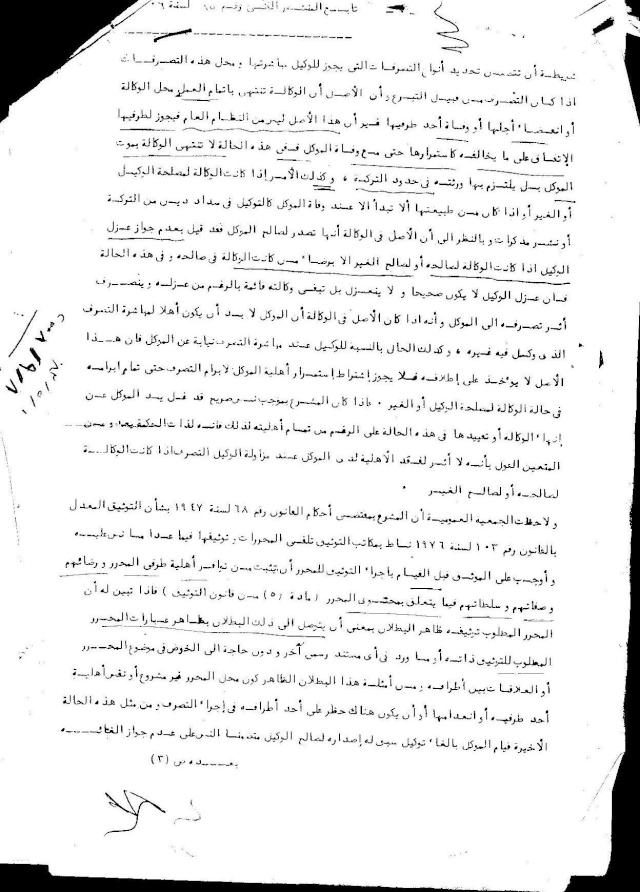 تابع المنشور الفنى رقم ١٥ لسنة ٠٦
شريطة أن تتضمن تحديد أنواع التصرفات التى يجوز للوكيل مباشرتها ومحل هذه التصرفات
اذا كان التصرف من قبيل التبرع وأن الأصل أن الوكالة تنتهى باتمام العمل محل الوكالة
أو انقضاء أجلها أو وفاة أحد طرفيها غير أن هذا الأصل ليس من النظام العام فيجوز لطرفيها
الإتفاق على ما يخالفه كاستمرارها حتى مع وفاة الموكل ففى هذه الحالة لا تنتهى الوكالة بموت
الموكل بل يلتزم بها ورثته فى حدود التركة ، وكذلك الأمر إذا كانت الوكالة لمصلحة الوكيل
أو الغير أو اذا كان من طبيعتها ألا تبدأ الا عند وفاة الموكل كالتوكيل فى سداد ديس من التركة
أو نشر مذكرات وبالنظر الى أن الأصل فى الوكالة أنها تصدر لصالح الموكل فقد قيل بعدم جواز عزل
الوكيل اذا كانت الوكالة لصالحه أو لصالح الغير الا برضاء من كانت الوكالة فى صالحه وفى هذه الحالة
فان عزل الوكيل لا يكون صحيحا و لا ينعزل بل تبقى وكالته قائمة بالرغم من عزله وينصرف
أثر تصرفه الى الموكل وأنه اذا كان الأصل فى الوكالة أن الموكل لا بد أن يكون أهلا لمباشرة التصرف
الذى وكل فيه غيره ، وكذلك الحال بالنسبة للوكيل عند مباشرة التصرف نيابة عن الموكل فان هذا
الأصل لا يؤخذ على إطلاقه فلا يجوز إشتراط إستمرار أهلية الموكل لابرام التصرف حتى تمام ابرامه
فى حالة الوكالة لمصلحة الوكيل أو الغير . فاذا كان المشرع بموجب نص صريح قد غل يد الموكل عن
إنهاء الوكالة أو تقييدها فى هذه الحالة على الرغم من تمام أهليته لذلك فانه لذات الحكمة يعد ومن
المتعين القول بأنه لا أثر لفقد الاهلية لدى الموكل عند مزاولة الوكيل التصرف اذا كانت الوكالة
لصالحه أو لصالح الغير .
ولاحظت الجمعية العمومية أن المشرع بمقتضى أحكام القانون رقم ٦٨ لسنة ١٩٤٧ بشأن التوثيق المعدل
بالقانون رقم ١٠٣ لسنة ١٩٧٦ نساط بمكاتب التوثيق تلقى المحررات وتوثيقها فيما عدا ما نص عليه
وأوجب على الموثق قبل القيام بأجراء التوثيق للمحرر أن يتثبت من توافر أهلية طرفى المحرر ورضائهم
وصفاتهم وسلطاتهم فيما يتعلق بمحتوى المحرر (مادة /٥ من قانون التوثيق) فاذا تبين له أن
المحرر المطلوب توثيقه ظاهر البطلان بمعنى أن يتوصل الى ذلك البطلان بظاهر عبارات المحرر
المطلوب للتوثيق ذاته أو ما ورد فى أى مستند رسمى آخر ودون حاجة الى الخوض فى موضوع المحرر
أو العلاقات بين أطرافه ومن أمثلة هذا البطلان الظاهر كون محل المحرر غير مشروع أو نقص أهلية
أحد طرفيه أو انعدامها أو أن يكون هناك حظر على أحد أطرافه فى إجراء التصرف ومن مثل هذه الحالة
الأخيرة قيام الموكل بالغاء توكيل سبق له إصداره لصالح الوكيل متضمنا النص على عدم جواز الغائه
بعده ص (٣)